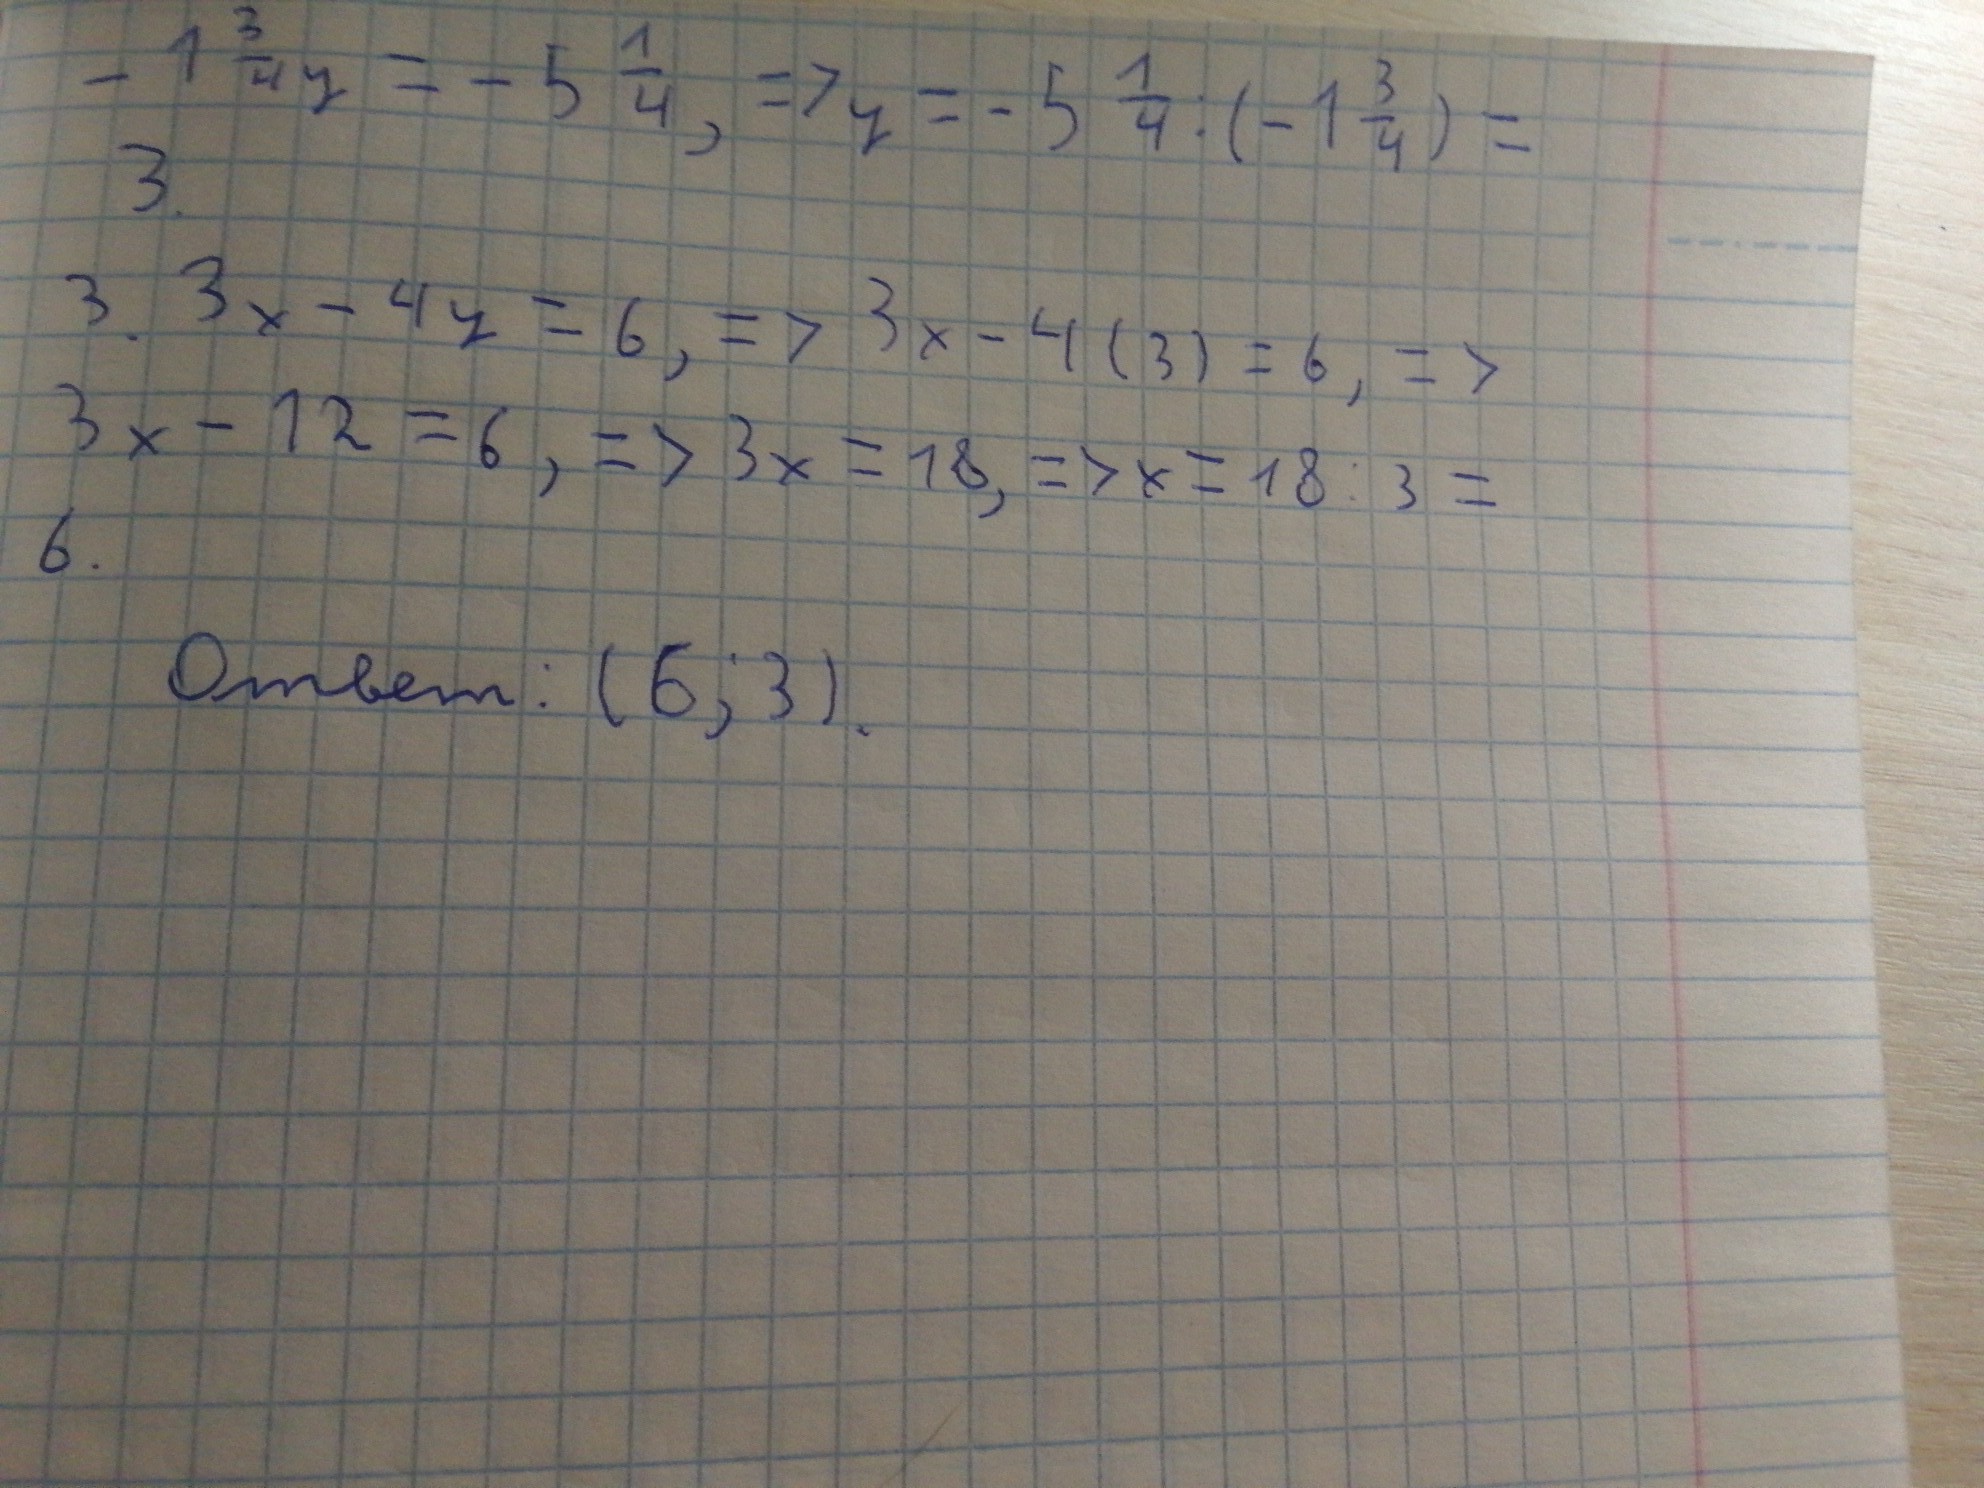 - 1 3/4 y = - 5 1/4, => y = - 5 1/4 : (- 1 3/4) =
3.
3. 3x - 4y = 6, => 3x - 4(3) = 6, =>
3x - 12 = 6, => 3x = 18, => x = 18 : 3 =
6.
Ответ: (6; 3).